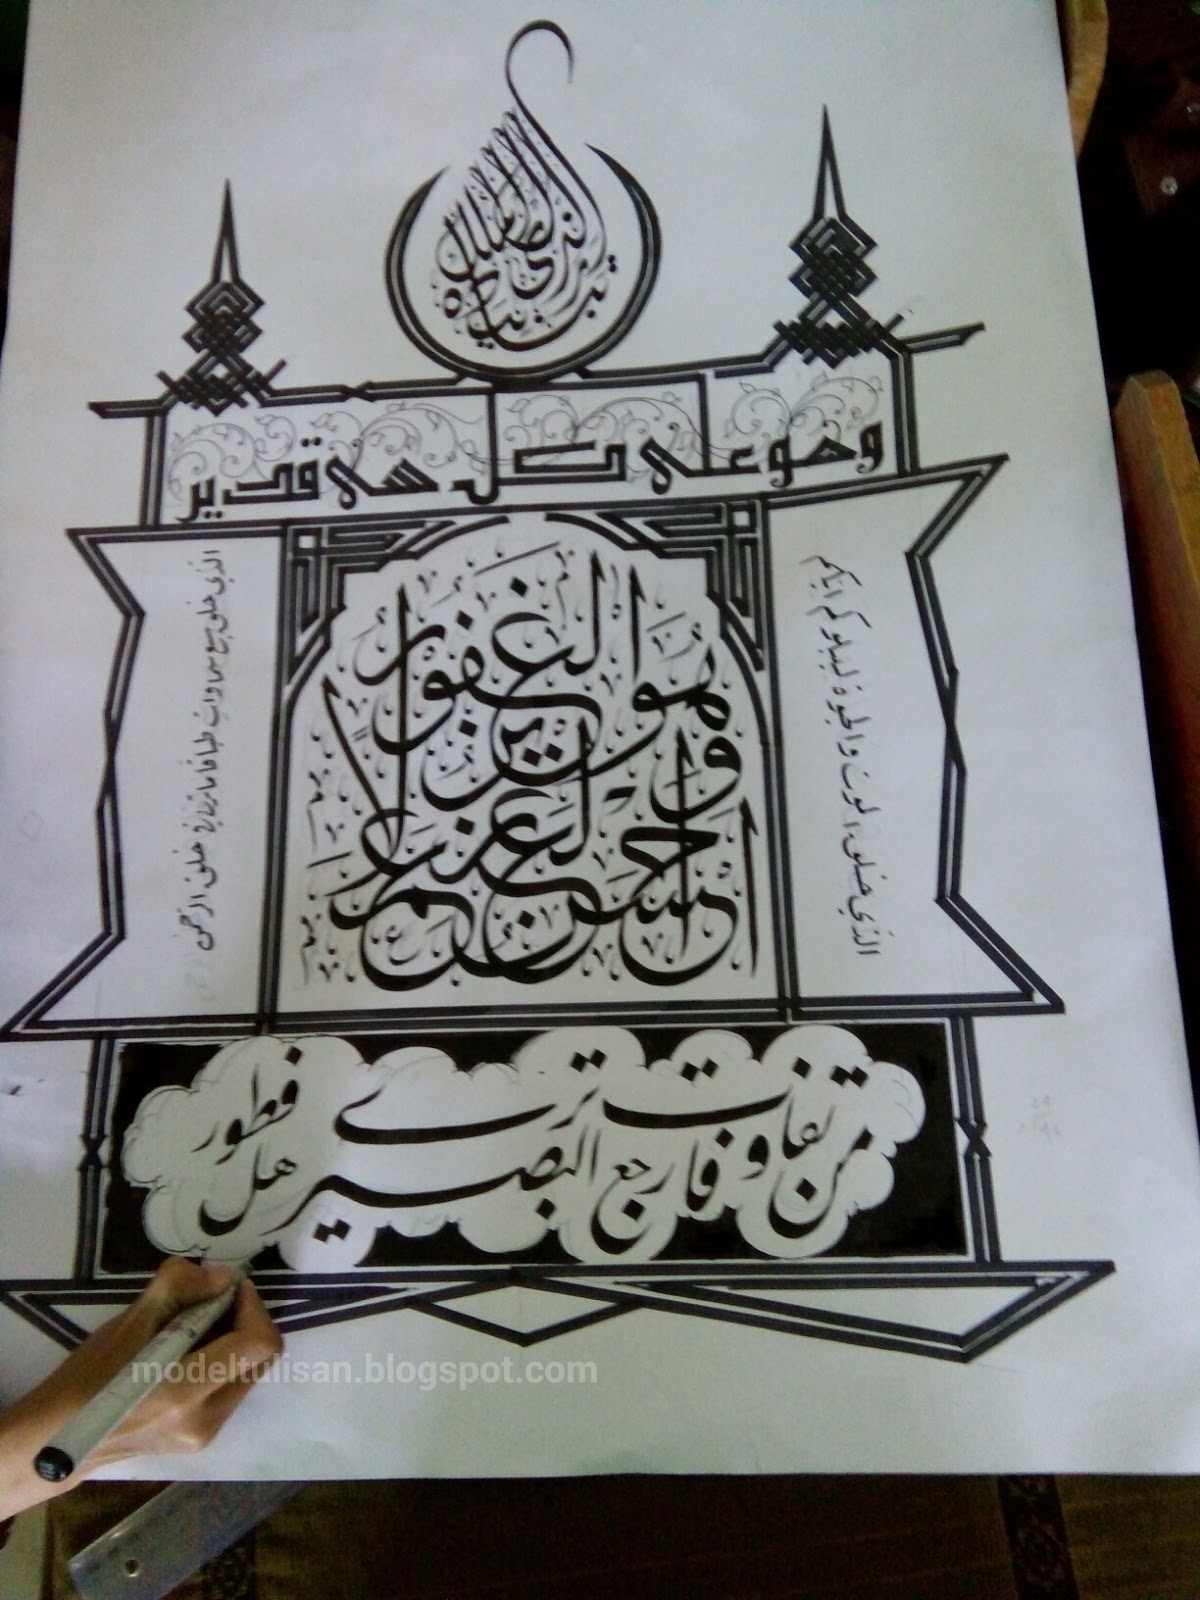 تبرك الذي بيده الملك
وهو على كل شى قدير
الذي خلق الموت والحيوة ليبلوكم ايكم
احسن عملا وهو العزيز الغفور
الذي خلق سبع سماوات طباقا ما ترى في خلق الرحمن
من تفاوت فارجع البصير هل ترى فطور
modeltulisan.blogspot.com